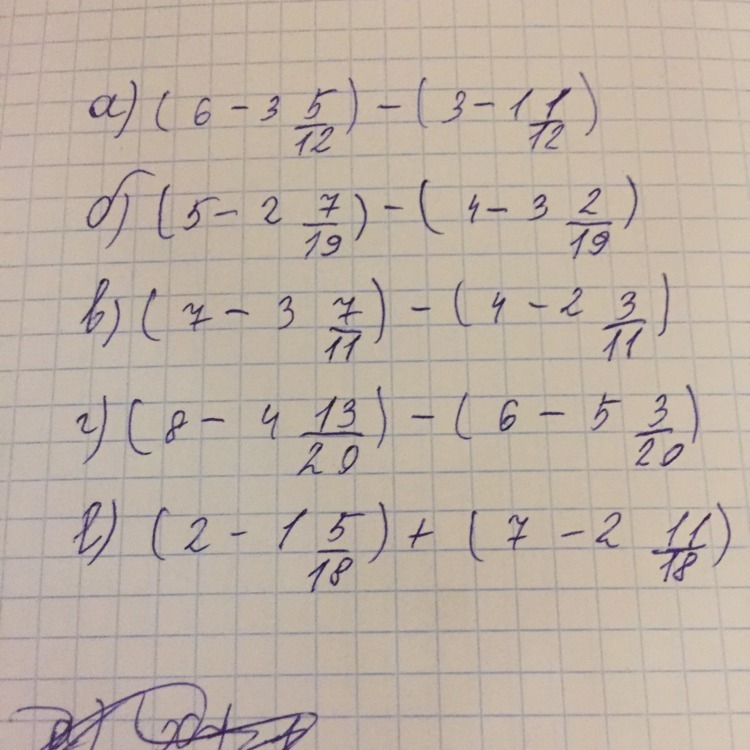 а) (6 - 3 5/12) - (3 - 1 1/12)
б) (5 - 2 7/19) - (4 - 3 2/19)
в) (7 - 3 7/11) - (4 - 2 3/11)
г) (8 - 4 13/20) - (6 - 5 3/20)
в) (2 - 1 5/18) + (7 - 2 11/18)